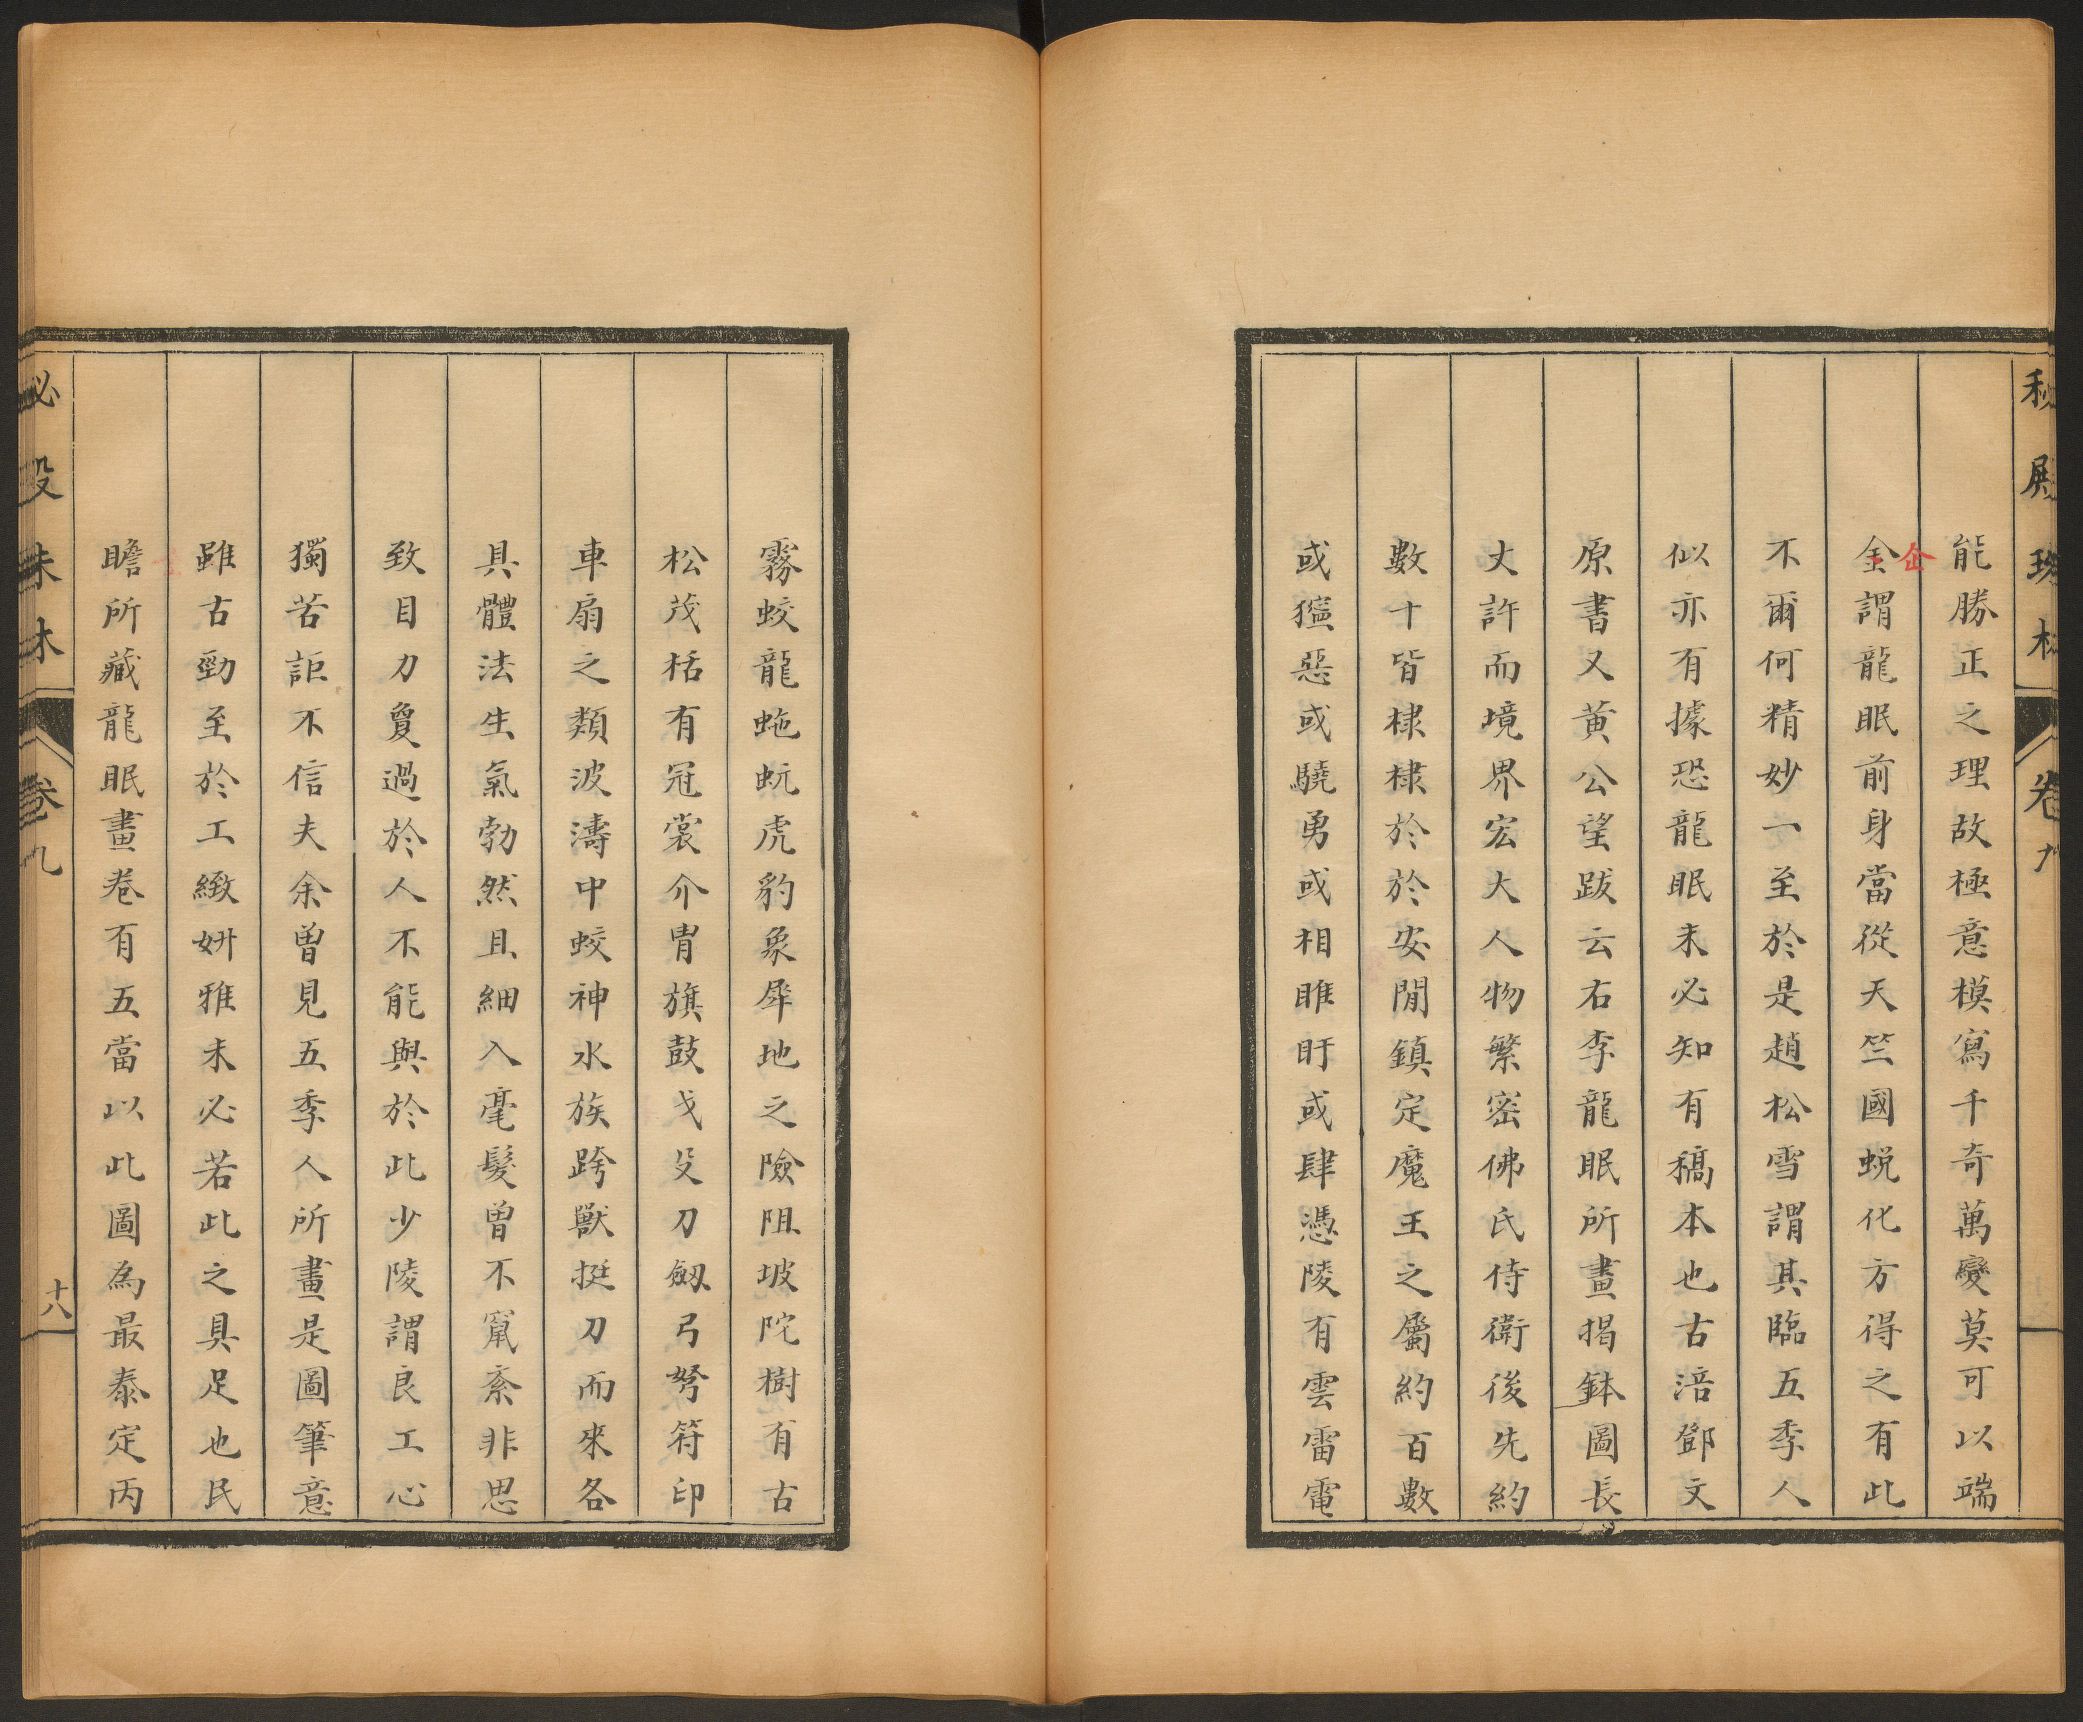 秘殿珠林 卷九
能勝正之理故極意模寫千奇萬變莫可以端
金謂龍眠前身當從天竺國蜕化方得之有此
企
不爾何精妙一至於是趙松雪謂其臨五季人
似亦有據恐龍眠未必知有稿本也古涪鄧文
原書又黄公望跋云右李龍眠所畫揭鉢圖長
丈許而境界宏大人物繁密佛氏侍衛後先約
數十皆棣棣於於安閒鎮定魔王之屬約百數
或獰惡或驍勇或相睢盱或肆憑陵有雲雷電
霧蛟龍虵蚖虎豹象犀地之險阻坡陀樹有古
松茂栝有冠裳介胄旗鼓戈殳刀劔弓弩符印
車扇之類波濤中蛟神水族跨獸挺刀而來各
具體法生氣勃然且細入毫髮曾不窳紊非思
致目力敻過於人不能與於此少陵謂良工心
獨苦詎不信夫余曾見五季人所畫是圖筆意
雖古勁至於工緻妍雅未必若此之具足也民
瞻所藏龍眠畫卷有五當以此圖為最泰定丙
秘殿珠林 卷九 十八